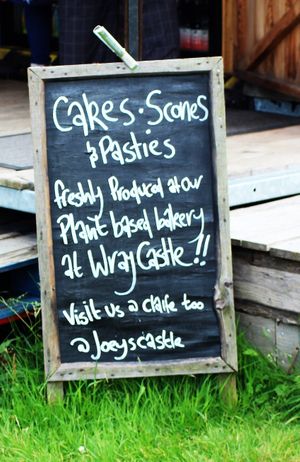 Cakes · Scones
& Pasties
freshly Produced at our
Plant based bakery
at Wray Castle!!
Visit us @ claife too
@Joeyscastle